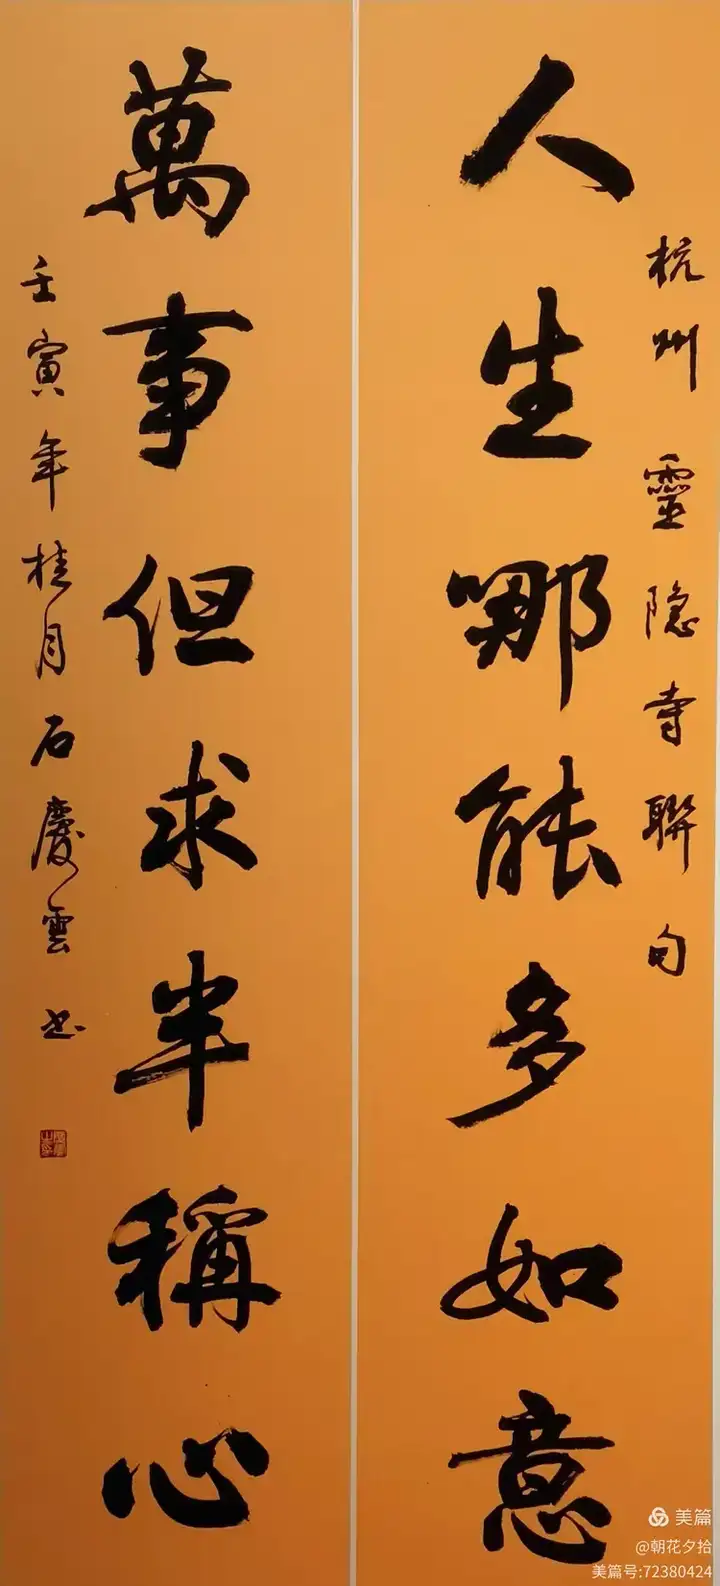 杭州靈隐寺聯句
人生哪能多如意
萬事但求半稱心
壬寅年桂月石慶雲书
美篇
@朝花夕拾
美篇号:72380424